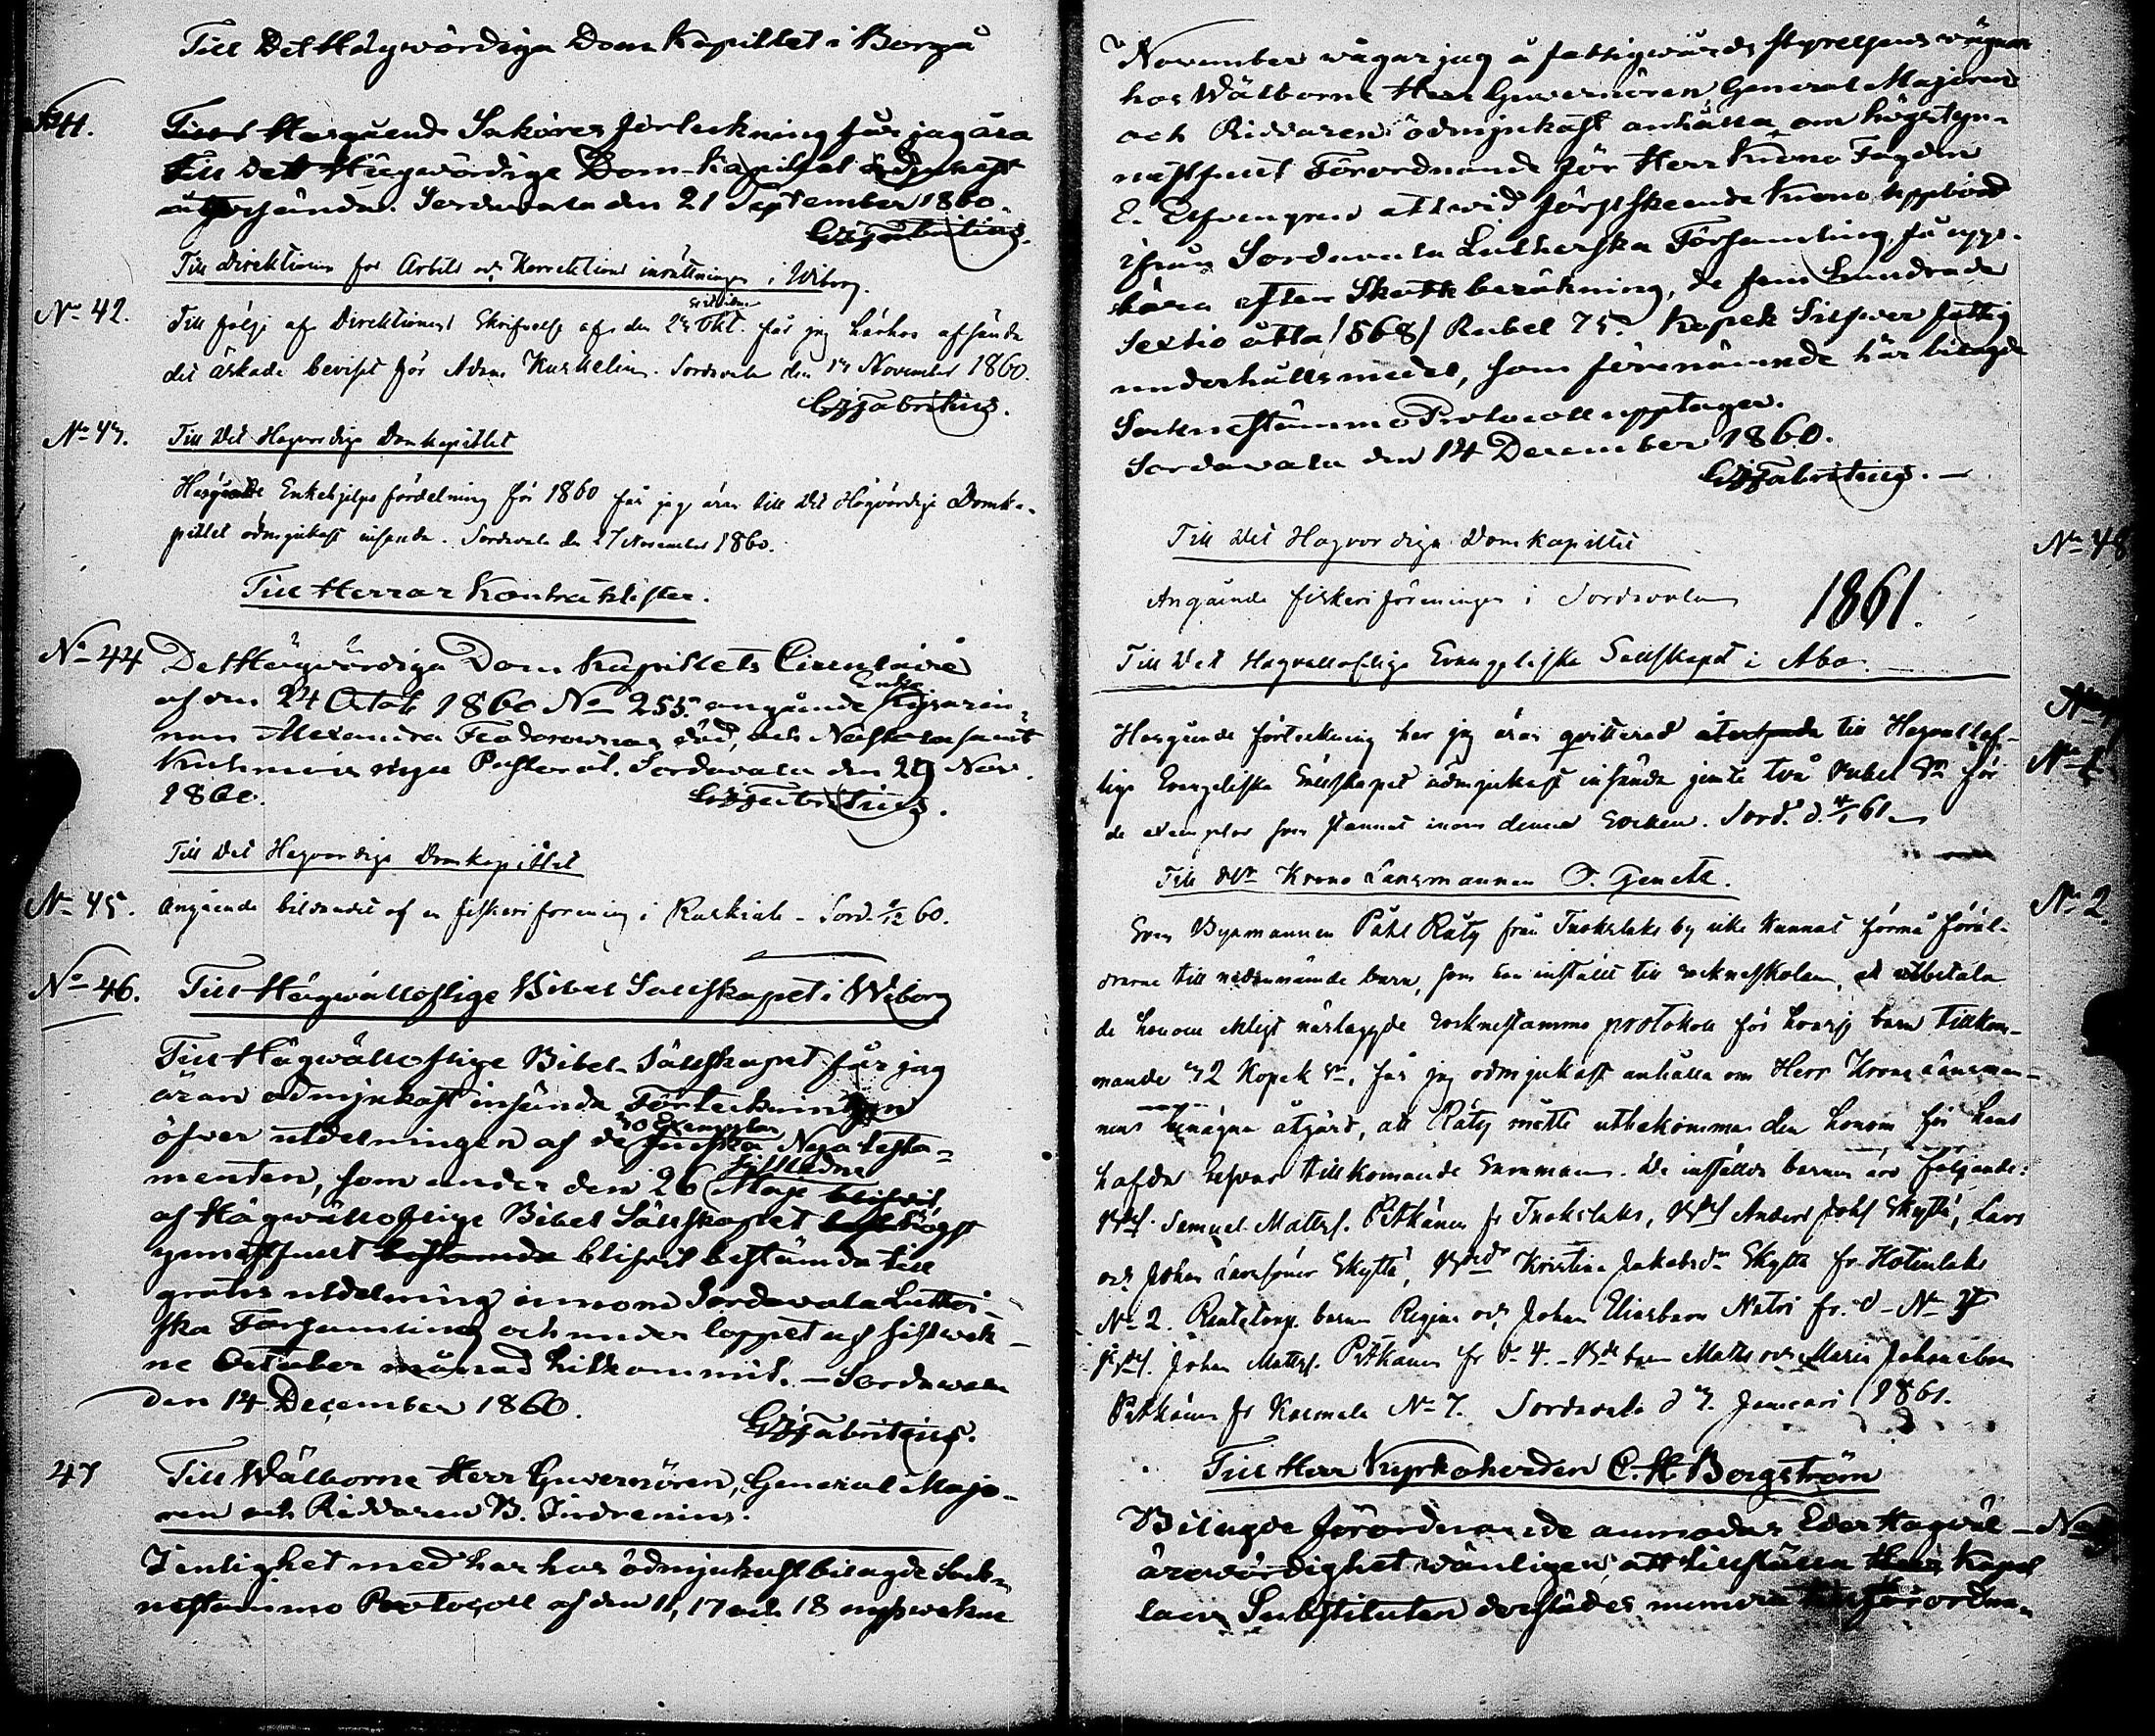 Till Det Högwördiga Dom Kapitlet i Borgå
N 41. Hosgående Sakören förteckning får jag ära
Till Dett Högwördige Dom-Kapitlet ödmjukast
öfwersända. Sordavala den 21 September 1860.
G J Fabritius.
Till Direktionen för Arbets och Korrektions inrättningen i Wiborg.
No 42. Till följe af Direktionens Skrifvelse af den 23 Okt. får jag härhos afsända
sistliden
det äskade beviset för Adam Kurkelin. Sordavala den 13 November 1860.
G J Fabritius.
No 43. Till Det Högvördige Domkapitlet
Hosgående Enkehjelps fördelning för 1860 får jag äran till Det Högvördige Domka-
pitlet ödmjukast insända. Sordavala den 27 November 1860.
Till Herrar Kontraktister.
No 44 Det Högvördiga Dom Kapitlets Cirenläire
af den 24 Octob 1860 No 255. angående Kejsarin-
Enke
nan Alexandra Feodorownas död, och Nest
Pastorat. Sordavala den 29 Nov.
1860. G J Fabritius.
Till Det Högvördige Domkapitlet
No 45. Angående bildandet af en fiskeri förening i Ruskiala - Sord. /12 60.
No 46. Till Högwälloflige Bibel Sällskapet i Wiborg
Till Högwälloflige Bibel-Sällskapet får jag
äran ödmjukast insända Förteckningen
öfver utdelningen af de Finska Nya testa-
30 Exemplar
menten, som under den 26 Maji blifvit
sistledne
af Högwälloflige Bibel Sällskapet högst
gunstfullt bestämda blifvit bestämda till
gratis utdelning innom Sordavala Luthri-
ska Församling och under loppet af sistwek-
ne October månad hitkommit. - Sordavala
den 14 December 1860.
G J Fabritius.
47 Till Wälborne Herr Guvernören, General Majo-
ren och Riddaren B. Indrenius.
I enlighet med har hos ödmjukast bilagde Sock-
nestämmo Protocoll af den 11, 17 och 18 nysswekne
November wågar jag å fattigwårds styrelsens wägnar
hos Wälborne Herr Guvernören, General Majoren
och Riddaren ödmjukast anhålla om högstgun-
nästfullt Förordnande för Herr Krono Fogden
E. Elfvengren att wid förestskeende Krono uppbörd
ifrån Sordavala Lutherska Församling få upp-
bära efter Skattberäkning, de fem hundrade
Sextio åtta (568) Rubel 75. Kopek Silfwer fattig
underhålls medel, som förenämnde här bilagde
Sockne stämmo Protocoll upptager.
Sordavala den 14 December 1860.
G J Fabritius. -
Till Det Högvördiga Domkapitlet No 48
Angående fiskeri föreningen i Sordavala
1861.
Till Det Högvälloflige Evangeliska Sällskapet i Åbo.
Hosgående förteckning har jag äran qvitterad återsända till Högvällof- No 1.
lige Evangeliska Sällskapet ödmjukast insända jemte två Rubel Sr för
de exemplar som stannat inom denna Socken. Sord. d. 4/1 61
Till Hr Krono Länsmannen O. Genetz.
No 2.
Som Bysmannen Påhl Räty från Tuokslaks by icke kunnat förmå föräl-
drarne till nedannämde barn, som han instält till sockneskolan, at utbetala
de honom enligt närlaggde socknestämmo protokoll för hvarje barn tillkom-
mande 32 Kopek Sr, får jag ödmjukast anhålla om Herr Krono Länsman-
nens benägna åtgärd, att Räty måtte utbekomma den honom för hans
hafda besvär tillkomande Summan. De instälda barnen äro följande:
Samuel Mattss. Pitkänen fr Tuokslaks, Anders Johs Skyttä, Lars
och Johan Larssöner Skyttä, Kristina Jakobsdr Skyttä fr Hotinlaks
No 2. barn Regina och Johan Eliasbarn Natri fr. d- No 3
Johan Mattss. Pitkänen fr d- 4. - barn Matts och Maria Johansbarn
Pitkänen fr Karmala No 7. Sordavala d 3. Januari 1861.
Till Herr Kyrkoherden C. H. Bergström
Bilagde förordnande anmodas Eder Högväl- No 3
ärevördighet wänligen, att tillställa Herr Kapel
lans Substituten derstädes numera förordna-